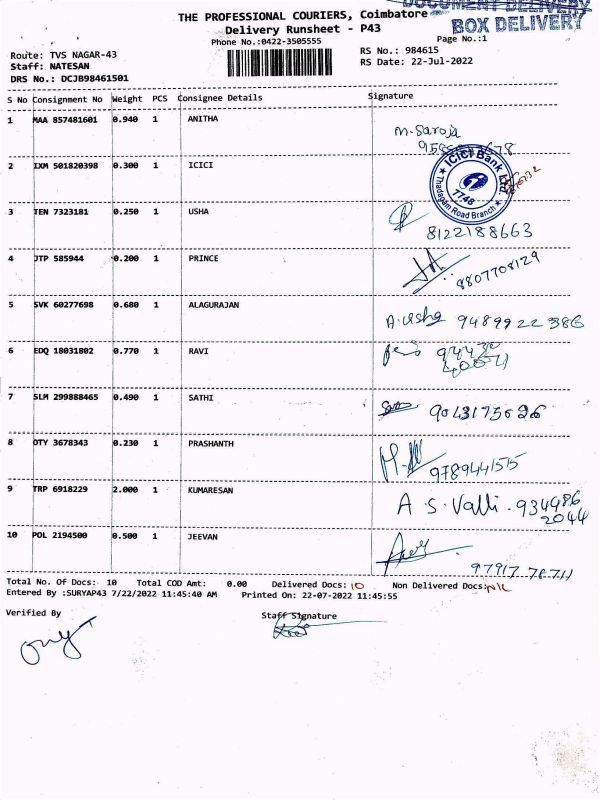 DOCUMENT DELIVERY
THE PROFESSIONAL COURIERS, Coimbatore
BOX DELIVERY
Delivery Runsheet - P43
Phone No.:0422-3505555
Page No.:1
Route: TVS NAGAR-43
RS No.: 984615
Staff: NATESAN
RS Date: 22-Jul-2022
DRS No.: DCJB98461501
S No Consignment No Weight PCS Consignee Details Signature
1 MAA 857481601 0.940 1 ANITHA
M. Saroja
2 IXM 501820398 0.300 1 ICICI
ICICI Bank Ltd.
7748
Thadagam Road Branch
3 TEN 7323181 0.250 1 USHA
8122188663
4 JTP 585944 0.200 1 PRINCE
8807708129
5 SVK 60277698 0.680 1 ALAGURAJAN
A. Usha 9489922386
6 EDQ 18031802 0.770 1 RAVI
7 SLM 299888465 0.490 1 SATHI
8 OTY 3678343 0.230 1 PRASHANTH
9789441515
9 TRP 6918229 2.000 1 KUMARESAN
A. S. Valli. 934486
2044
10 POL 2194500 0.500 1 JEEVAN
Total No. Of Docs: 10 Total COD Amt: 0.00 Delivered Docs: 10 Non Delivered Docs: NIL
Entered By :SURYAP43 7/22/2022 11:45:40 AM Printed On: 22-07-2022 11:45:55
Verified By Staff Signature